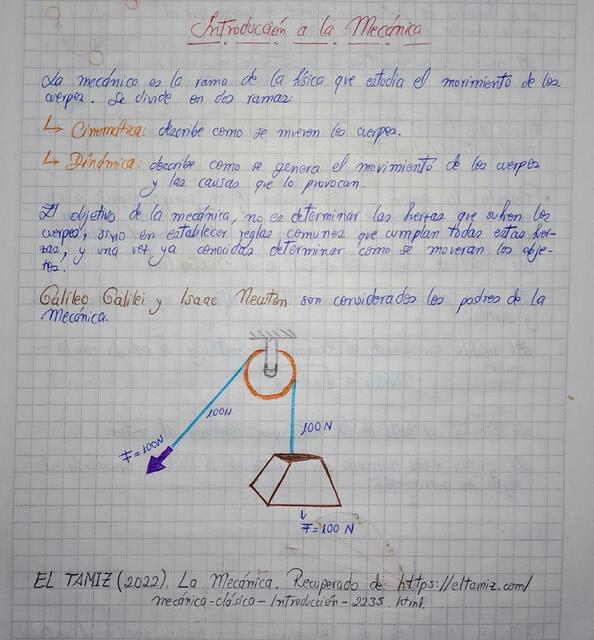 Introducción a la Mecánica
La mecánica es la rama de la física que estudia el movimiento de los
cuerpos. Se divide en dos ramas:
↳ Cinemática: describe como se mueven los cuerpos.
↳ Dinámica: describe como se genera el movimiento de los cuerpos
y las causas que lo provocan.
El objetivo de la mecánica, no es determinar las fuerzas que sufren los
cuerpos, sino en establecer reglas comunes que cumplan todas estas fuer-
zas, y una vez ya conocidas determinar como se moveran los obje-
tos.
Galileo Galilei y Isaac Newton son considerados los padres de la
Mecánica.
100N
100 N
F=100N
F=100 N
EL TAMIZ (2022). La Mecánica. Recuperado de: https://eltamiz.com/
mecánica-clásica-Introducción-2235.html.